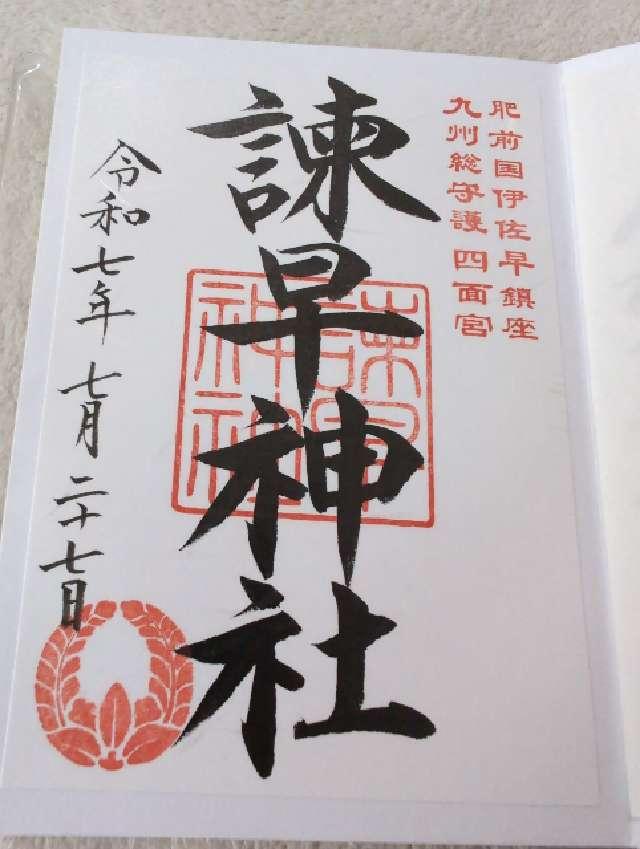 肥前国伊佐早鎮座
九州総守護 四面宮
諫早神社
諫早
神社
令和七年 七月 二十七日